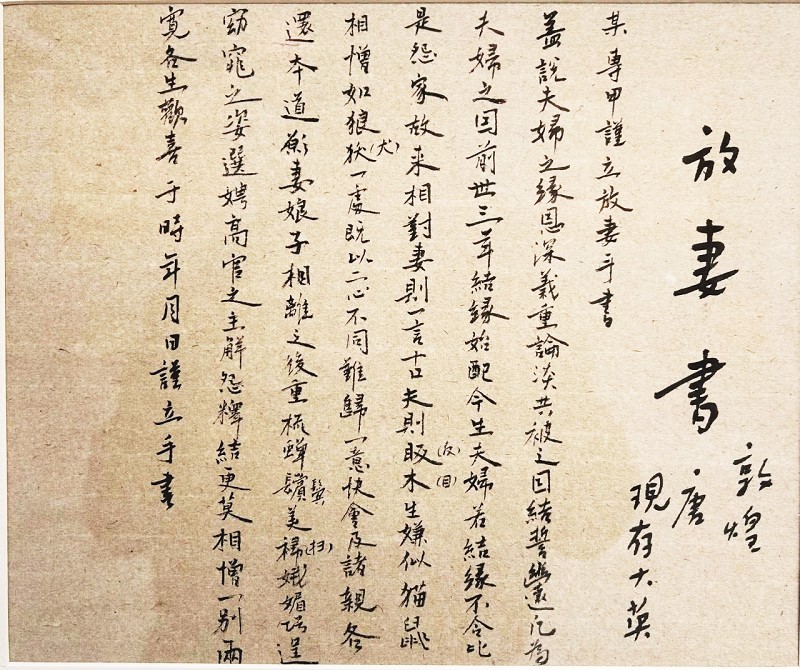 放妻書
敦煌
唐
現存大英
某專甲謹立放妻手書
蓋說夫婦之緣恩深義重論談共被之因結誓幽遠凡為
夫婦之因前世三年結緣始配今生夫婦若結緣不合比
是怨家故来相對妻則一言十口夫則眅木(反)(目)生嫌似貓鼠
相憎如狼狄(犬)一處既以二心不同難歸一意快會及諸親各
還本道願妻娘子相離之後重梳蟬鬢美(扫)娥媚巧逞
窈窕之姿選娉高官之主解怨釋結更莫相憎一別兩
寬各生歡喜于時年月日謹立手書